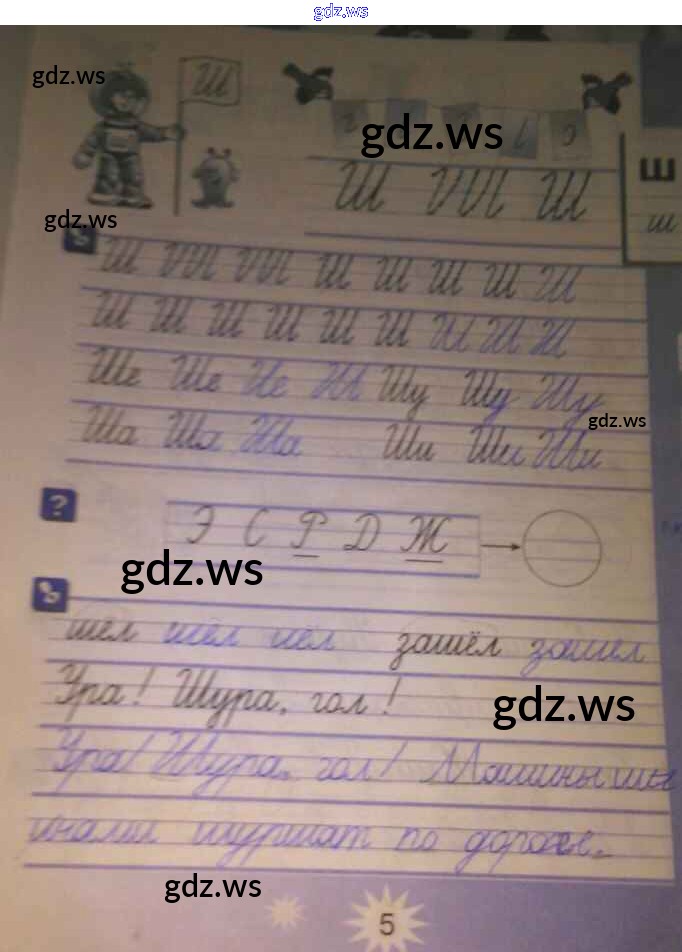 gdz.ws
gdz.ws
Ш
gdz.ws
Ш Ш Ш
Ш
ш
gdz.ws
Ш Ш Ш Ш Ш Ш Ш Ш
Ш Ш Ш Ш Ш Ш Ш Ш Ш
Ше Ше Ше Шу Шу Шу
gdz.ws
Ша Ша Ша Ши Ши Ши
?
Э С Р Д Ж
gdz.ws
шёл шёл шёл зашёл зашёл
Ура! Шура, гол!
gdz.ws
Ура! Шура, гол! Машины ши
нами шуршат по дороге.
gdz.ws
5